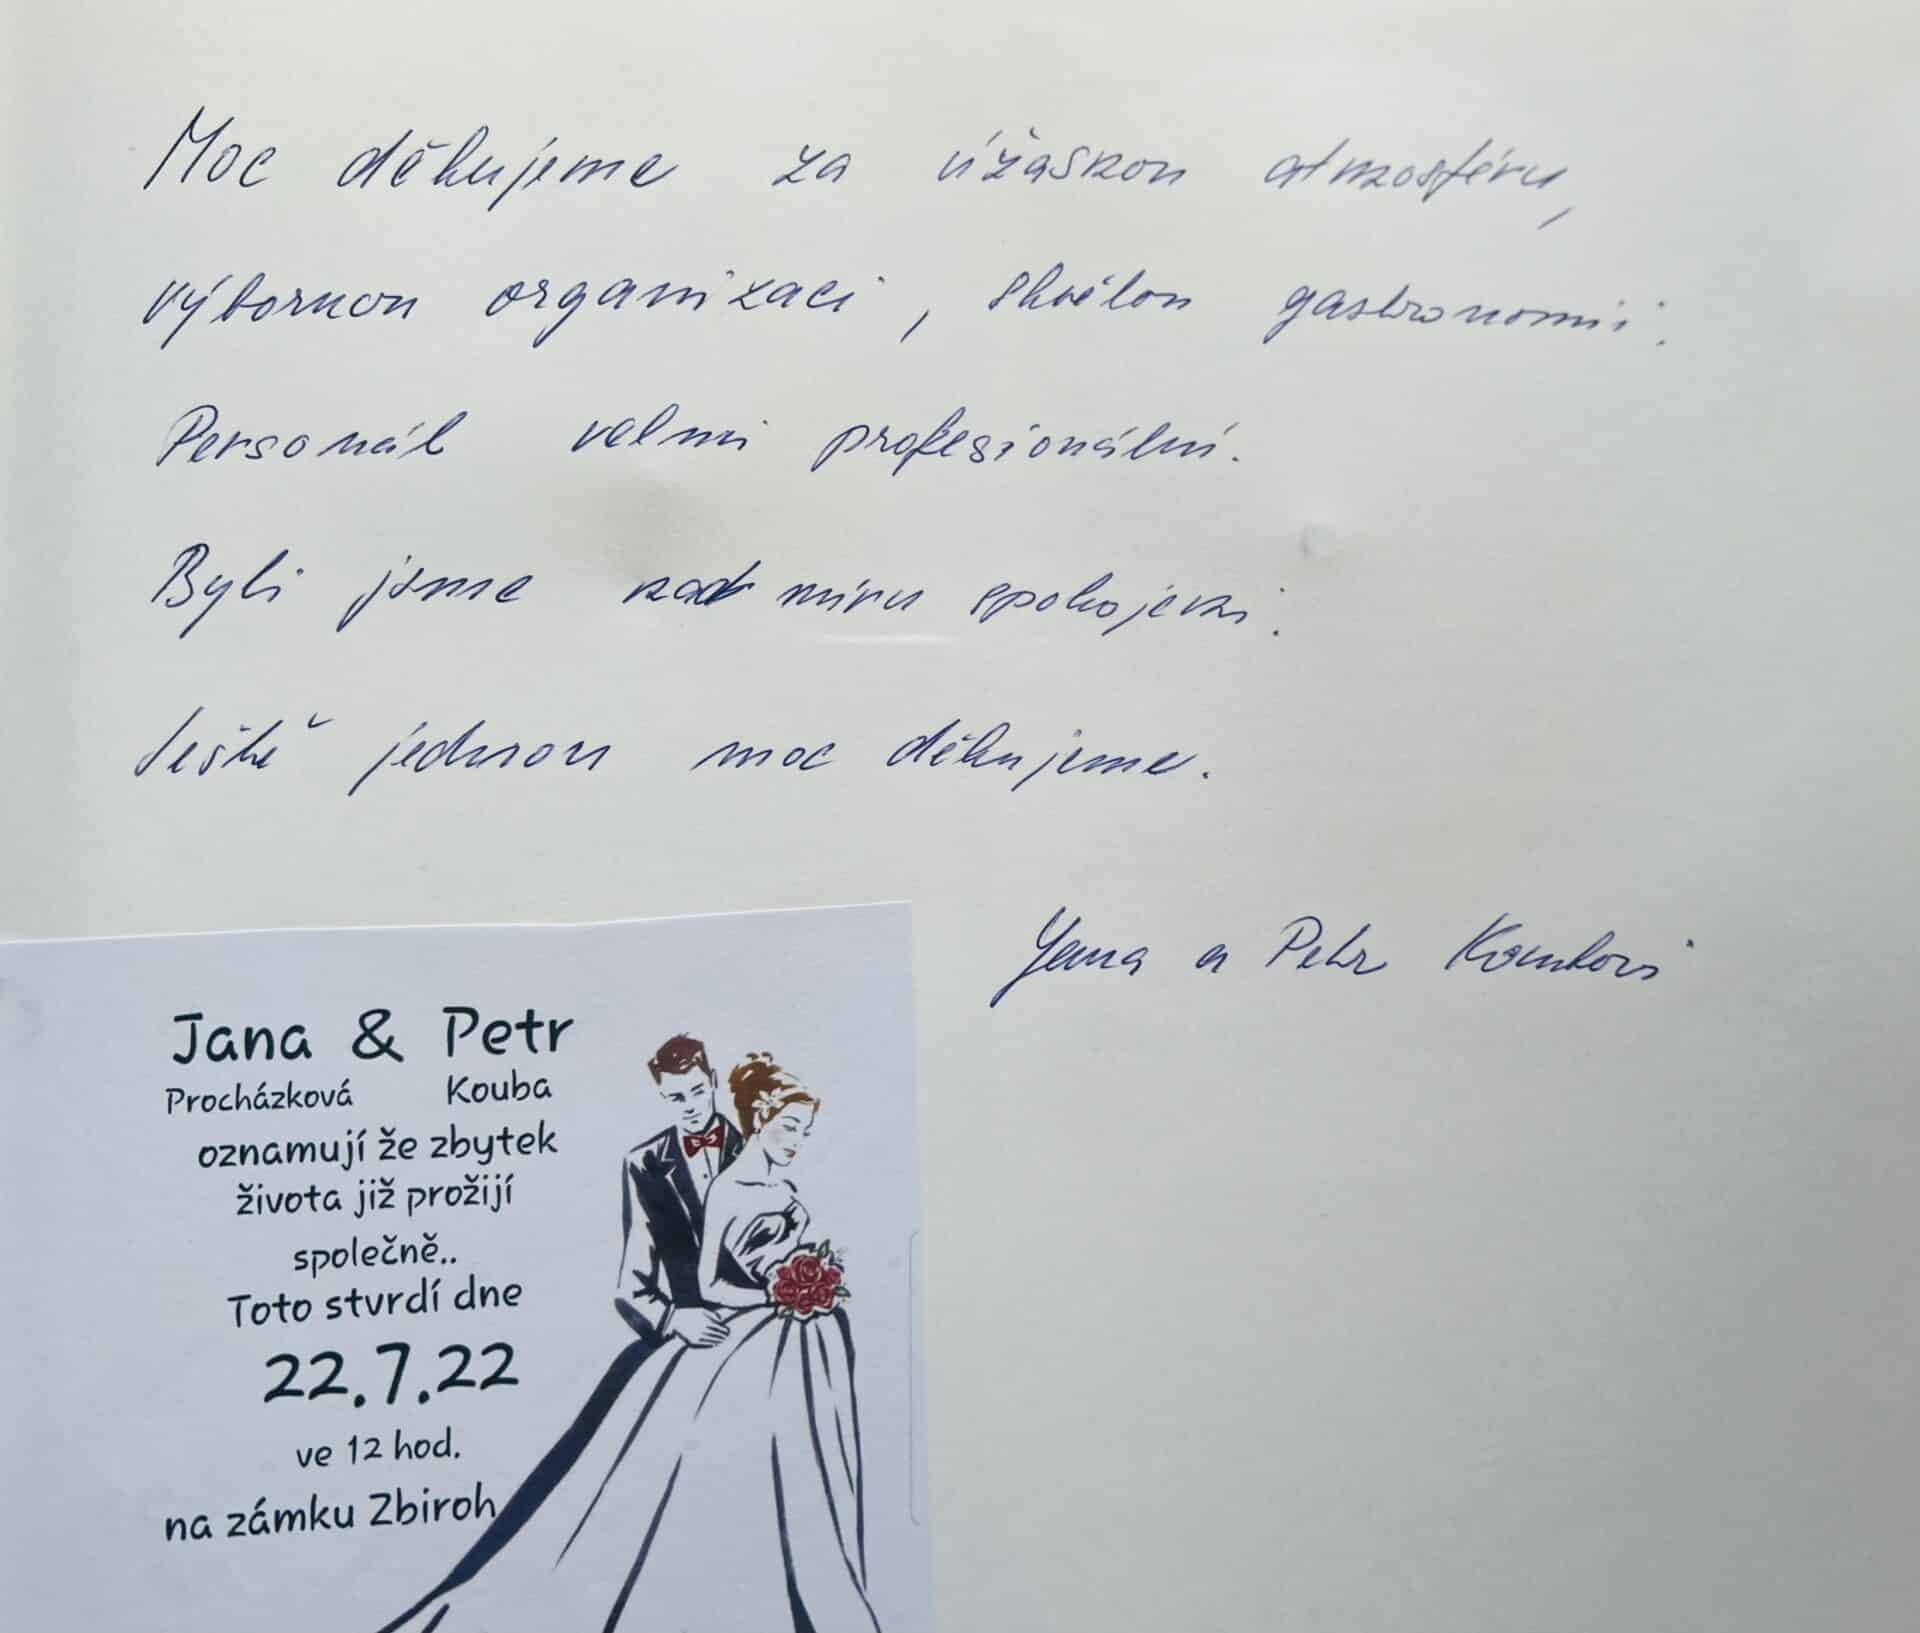 Moc děkujeme za úžaskou atmosféru,
výbornou organizaci, skvělou gastronomii.
Personál velmi profesionální.
Byli jsme nad míru spokojeni.
Ještě jednou moc děkujeme.
Jana a Petr Koubovi
Jana & Petr
Procházková Kouba
oznamují že zbytek
života již prožijí
společně..
Toto stvrdí dne
22.7.22
ve 12 hod.
na zámku Zbiroh